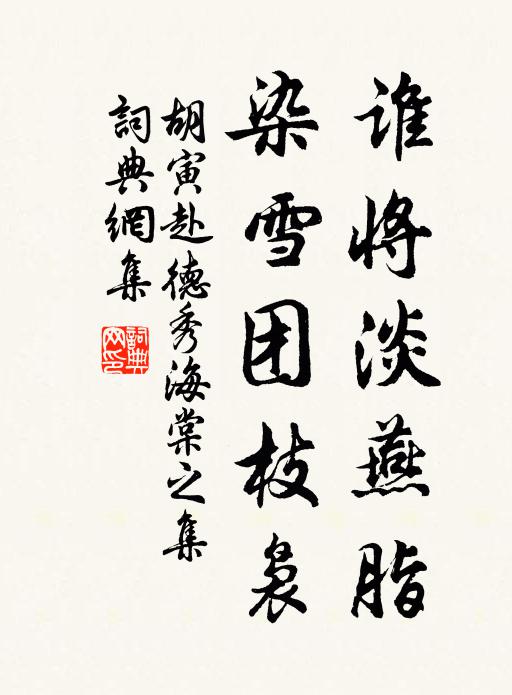 谁将淡燕脂
染雪团枝袅
胡寅赴德秀海棠之集
詞典網集
詞典网印